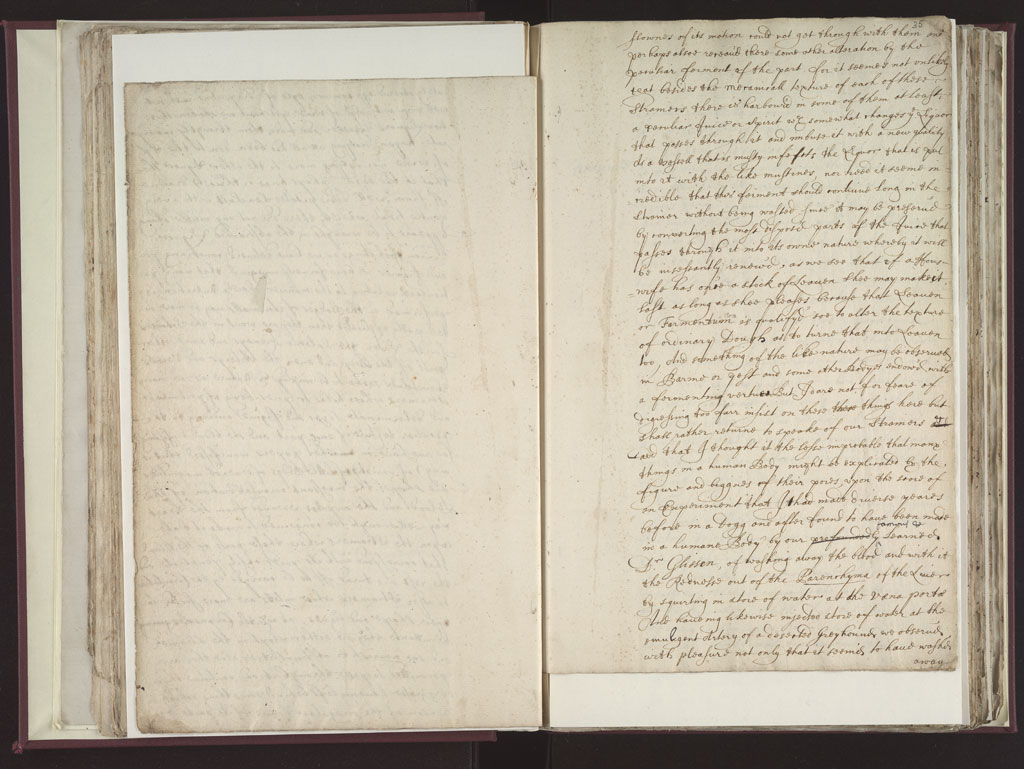 35
slownes of its motion could not get through with them and
perhaps alsoe receaue there some other alteration by the
peculiar ferment of the part. for it seemes not unlikely
that besides the mecanicall texture of each of these
Strainers there is harbourd in some of them at least,
a peculiar Juice or Spirit wch somewhat changes ye Liquor
that passes through it and imbues it with a new quality
As a vessell that is musty infects the Liquor that is put
into it with the like mustines, nor need it seeme in
credible that this ferment should continue long in the
Strainer without being wasted since it may be preserud
by converting the most dispos'd parts of the Juice that
passes through it into its owne nature whereby it will
be incessantly renew'd, as we see that if a Hous-
=wife has once a stock of Leauen shee may make it
last as long as shee pleases because that Leauen
or Fermentum is qualify'd soe to alter the texture
of ordinary Dough as to turne that into Leauen
too, And something of the like nature may be observed
in Barme or yest and some other bodyes endowed with
a fermenting vertue But I care not for feare of
digressing too farr insist on these these things here but
shall rather returne to speake of our Strainers
and that I thought it the lesse improbable that many
things in a human Body might be explicated by the
figure and biggnes of their pores, upon the score of
an Experiment that I had made diverse yeares
before in a Dogg and after found to have been made
in a humane Body by our profoundly Learned
Dr Glisson, of washing away the blood and with it
the Rednesse out of the Parenchyma of the Liver
by squirting in store of water at the Vena porta
And having likewise injected store of water at the
emulgent Artery of a dissected Greyhound, we observed
with pleasure not only that it seem'd to have washed
away